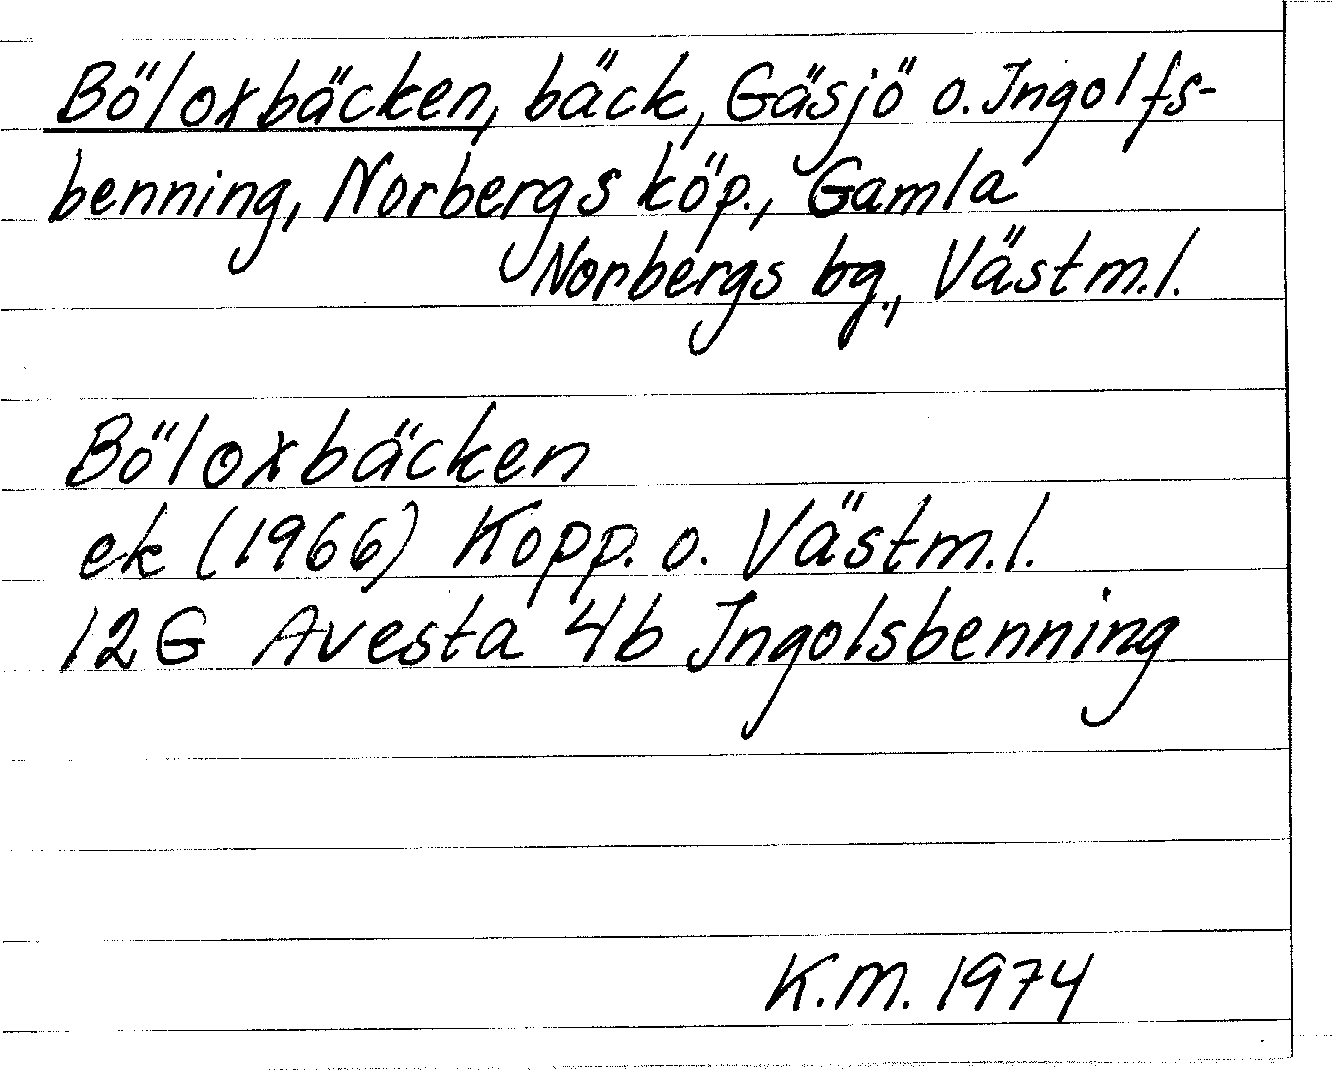 Böloxbäcken, bäck, Gäsjö o. Ingolfs-
benning, Norbergs köp., Gamla
Norbergs bg., Västm.l.
Böloxbäcken
ek (1966) Kopp. o. Västm.l.
12G Avesta 4b Ingolsbenning
K.M. 1974